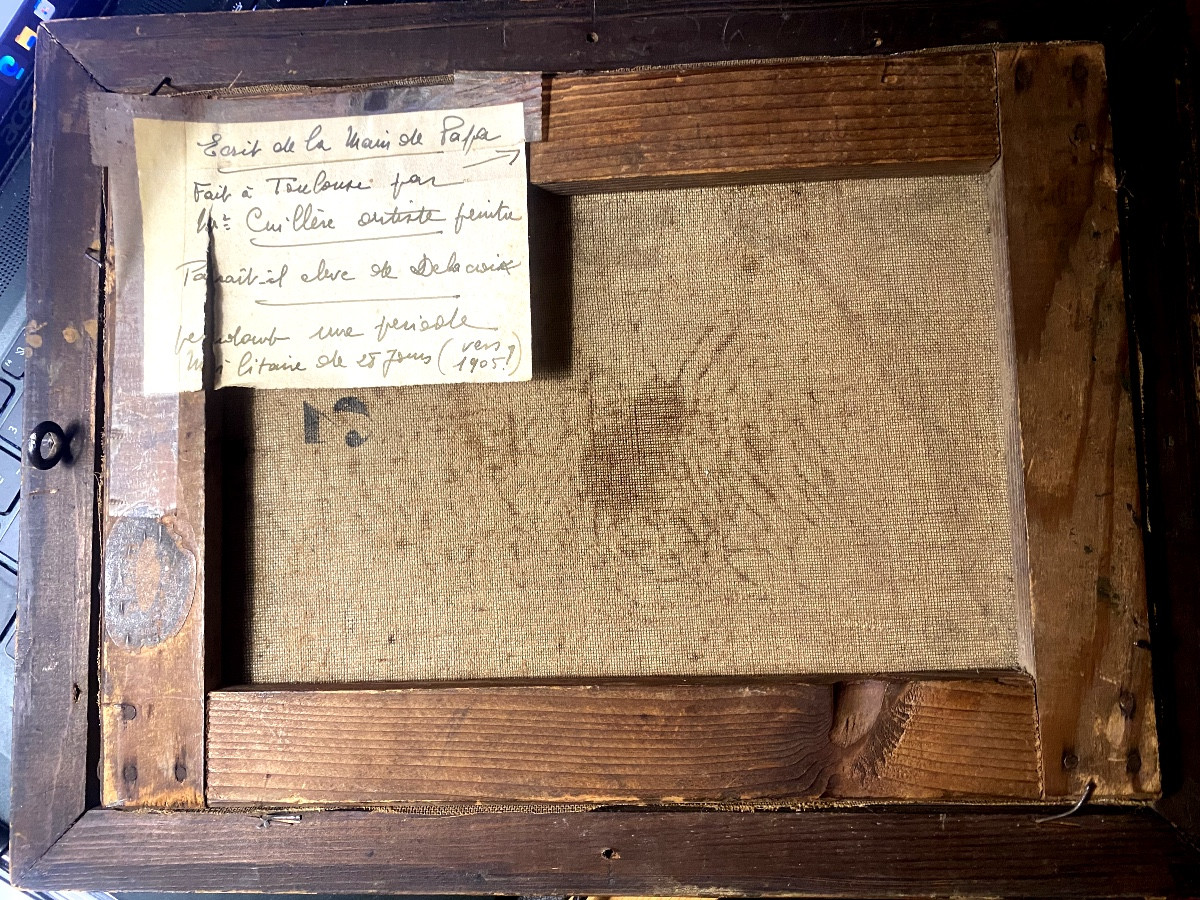 Ecrit de la Main de Papa
Fait à Toulouse par
Mr Cuillère artiste peintre
Paraît-il élève de Delacroix
pendant une période
Militaire de 28 Jours (vers 1905?)
5